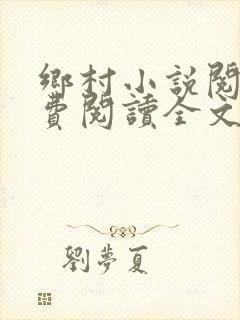 鄉村小說閱
費閱讀全文
劉夢夏